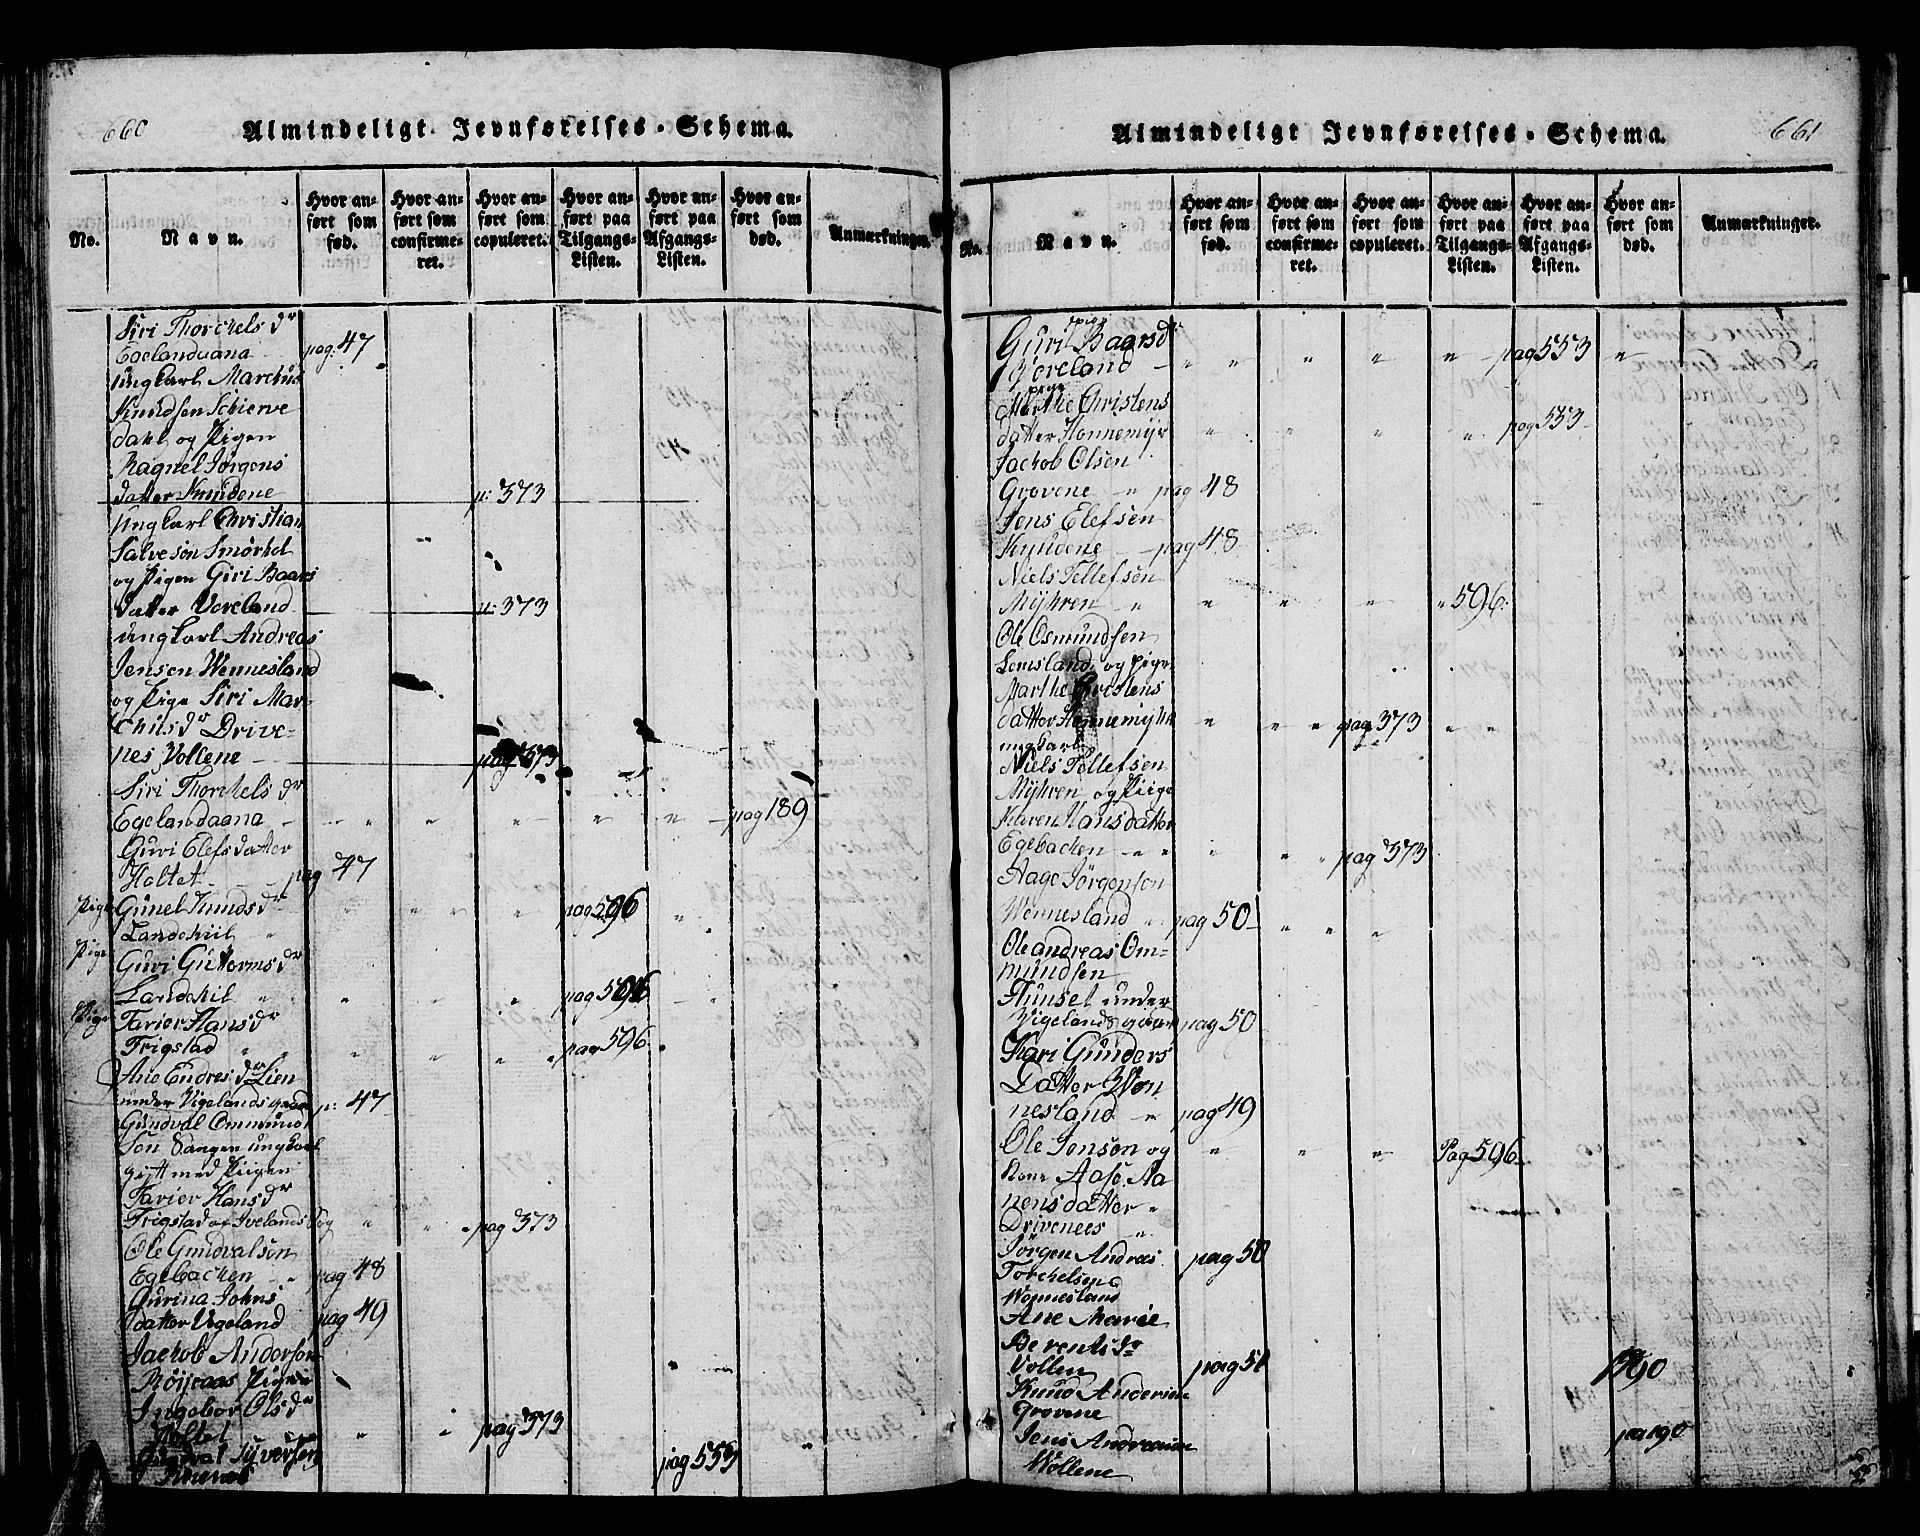 660
Almindeligt Jevnførelses-Schema.
No.
Navn.
Hvor anført som fød.
Hvor anført som confirmeret.
Hvor anført som copuleret.
Hvor anført paa Tilgangs-Listen.
Hvor anført paa Afgangs-Listen.
Hvor anført som død.
Anmærkninger.
Siri Thorchels dr
Egelandaana pag: 47
Ungkarl Marchus
Knudsen Schierve
dahl og Pigen
Ragnel Jørgens
datter Knudene p: 373
Ungkarl Christian
Salveson Smørhol
og Pigen Giri Baars
datter Voreland p: 373
Ungkarl Andreas
Jensen Wennesland
og Pige Siri Mar
chus dr Drive-
nes Vollene pag 373
Siri Thorchels dr
Egelandaana pag 189
Guri Elefsdatter
Holtet pag 47
Pige Gunel Knuds dr pag 596
Landehiil
Pige Guri Guttorms dr
Landehiil pag 596
Pige Tarier Hans dr
Frigstad pag 596
Ane Endres dr Lien
under Vigelands p: 47
Gundval Ommund
son Sangen ungkarl
gift med Piigen
Tarier Hans dr
Frigstad af Ivelands Sog pag 373
Ole Gundvalsen
Egebachen pag 48
Gurina Johns
datter Vigeland pag 49
Jachob Anderson
Røiseaas Pigen
Ingebor Ols dr
Holtet pag 373
Gundval Syversen pag 553
661
Almindeligt Jevnførelses-Schema.
No.
Navn.
Hvor anført som fød.
Hvor anført som confirmeret.
Hvor anført som copuleret.
Hvor anført paa Tilgangs-Listen.
Hvor anført paa Afgangs-Listen.
Hvor anført som død.
Anmærkninger.
pige
Guri Baars dr
Voreland pag 553
pige
Marthe Christens
datter Honnemyr pag 553
Jachob Olsen
Grovene pag 48
Jens Elefsen
Knudene pag 48
Niels Tellefsen
Myhren 596
Ole Osmundsen
Lomsland og pige
Marthe Christens
datter Honnemyhr pag 373
ungkarl
Niels Tellefsen
Myhren og Piige
Karen Hansdatter
Egebachen pag 373
Aage Jørgensen
Wennesland pag 50
Ole andreas Om-
mundsen
Hunsel under
Vigelands pag 50
Kari Gunders
Datter Wen
nesland pag 49
Ole Jensen og Pag 596
Kone Aase Aa
nensdatter
Drivenees
Jørgen Andreas pag 50
Torchelsen
Wennesland
Ane Marie
Berents dr
Vollen pag 51
Knud Anderine 190
Grovene
Jens Andreas pa 190
Wollene